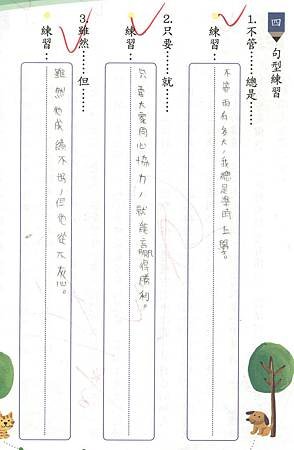 四 句型練習
1.不管……總是……
練習：不管雨有多大，我總是準時上學。
2.只要……就……
練習：只要大家同心協力，就能贏得勝利。
3.雖然……但……
練習：雖然他成績不出，但他從不灰心。